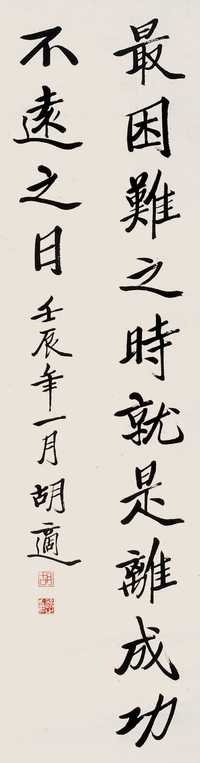 最困難之時就是離成功
不遠之日
壬辰年一月胡適